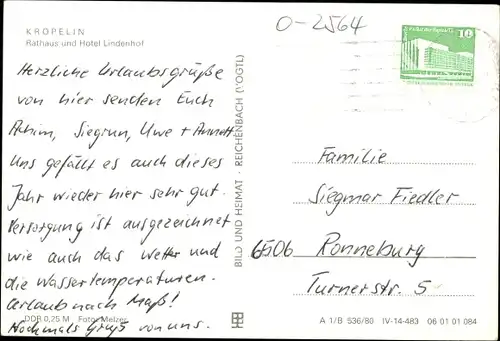 O-2564
KRÖPELIN
Rathaus und Hotel Lindenhof
Herzliche Urlaubsgrüße
von hier senden Euch
Achim, Siegrun, Uwe + Annett.
Uns gefällt es auch dieses
Jahr wieder hier sehr gut.
Versorgung ist ausgezeichnet
wie auch das Wetter und
die Wassertemperaturen.
Urlaub nach Maß!
Nochmals Gruß von uns.
DDR 0,25 M Foto: Melzer
BILD UND HEIMAT · REICHENBACH (VOGTL)
10
Familie
Siegmar Fiedler
6506 Ronneburg
Turnerstr. 5
A 1/B 536/80 IV-14-483 06 01 01 084